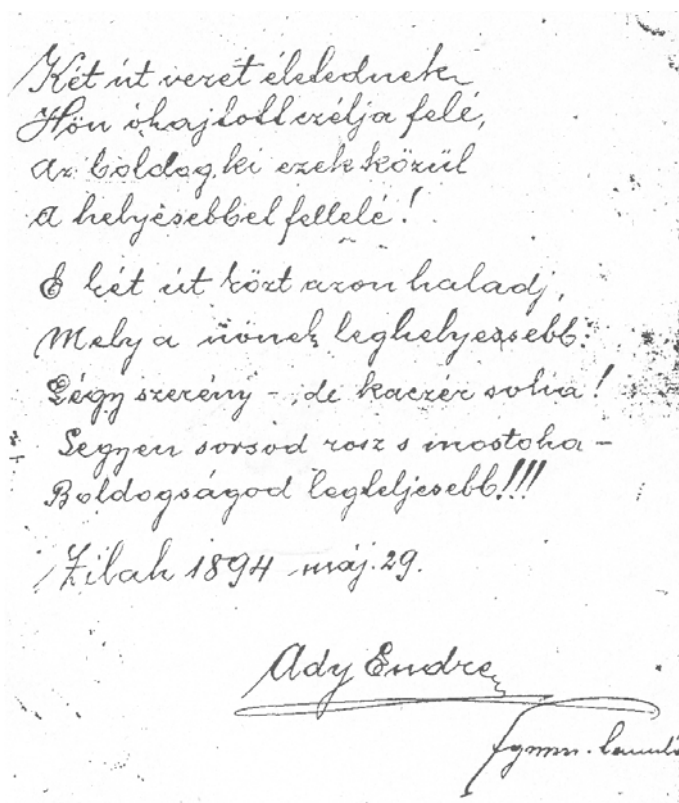 Két út vezet életednek
Hőn óhajtott czélja felé,
Az boldog, ki ezek közül
A helyesebbet fellelé!
E két út közt azon haladj,
Mely a nőnek leghelyessebb:
Légy szerény -, de kaczér soha!
Legyen sorsod rosz s mostoha -
Boldogságod legteljesebb!!!
Zilah 1894 máj. 29.
Ady Endre
fgymn. tanuló